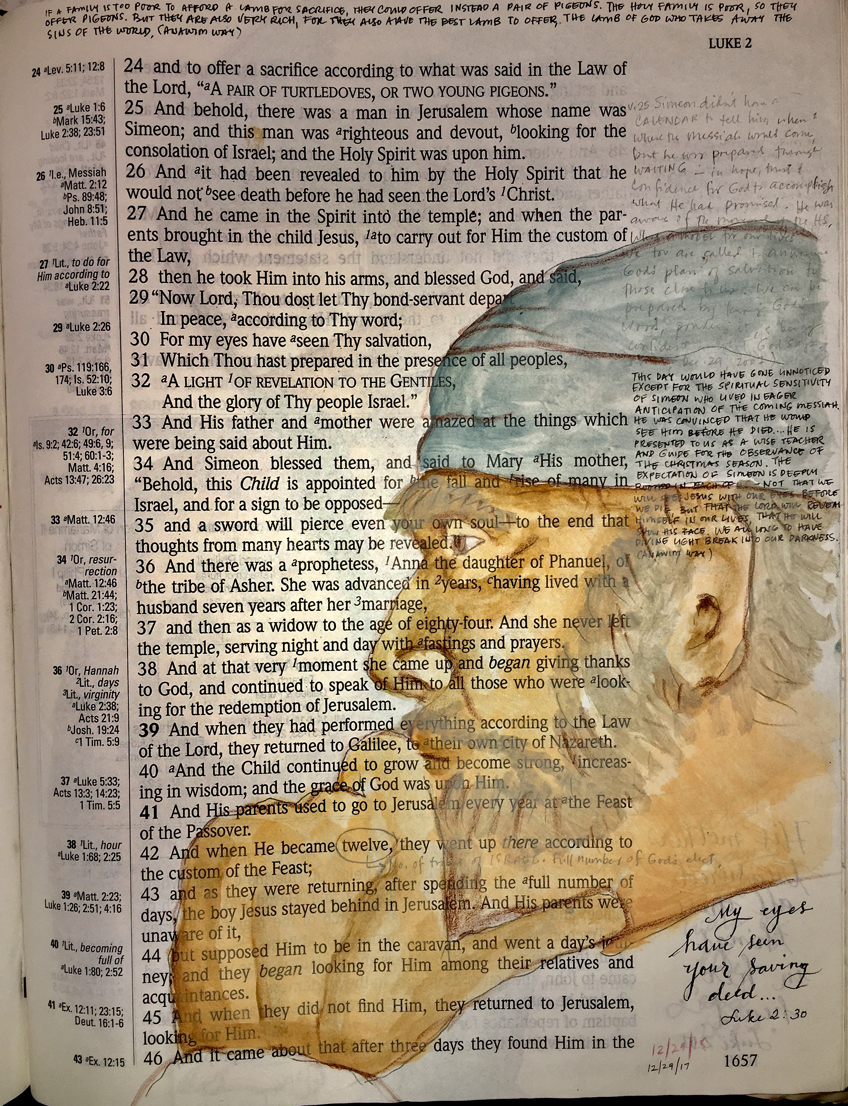 IF A FAMILY IS TOO POOR TO AFFORD A LAMB FOR SACRIFICE, THEY COULD OFFER INSTEAD A PAIR OF PIGEONS. THE HOLY FAMILY IS POOR, SO THEY
OFFER PIGEONS. BUT THEY ARE ALSO VERY RICH, FOR THEY ALSO HAVE THE BEST LAMB TO OFFER, THE LAMB OF GOD WHO TAKES AWAY THE
SINS OF THE WORLD. (ANAWIM WAY)
LUKE 2
24 and to offer a sacrifice according to what was said in the Law of
the Lord, “aA PAIR OF TURTLEDOVES, OR TWO YOUNG PIGEONS.”
25 And behold, there was a man in Jerusalem whose name was
Simeon; and this man was arighteous and devout, blooking for the
consolation of Israel; and the Holy Spirit was upon him.
26 And ait had been revealed to him by the Holy Spirit that he
would not bsee death before he had seen the Lord’s 1Christ.
27 And he came in the Spirit into the temple; and when the par-
ents brought in the child Jesus, 1ato carry out for Him the custom of
the Law,
28 then he took Him into his arms, and blessed God, and said,
29 “Now Lord, Thou dost let Thy bond-servant depart
In peace, aaccording to Thy word;
30 For my eyes have aseen Thy salvation,
31 Which Thou hast prepared in the presence of all peoples,
32 aA LIGHT 1OF REVELATION TO THE GENTILES,
And the glory of Thy people Israel.”
33 And His father and amother were amazed at the things which
were being said about Him.
34 And Simeon blessed them, and said to Mary aHis mother,
“Behold, this Child is appointed for bthe fall and 1rise of many in
Israel, and for a sign to be opposed—
35 and a sword will pierce even your own soul—to the end that
thoughts from many hearts may be revealed.”
36 And there was a aprophetess, 1Anna the daughter of Phanuel, of
bthe tribe of Asher. She was advanced in 2years, chaving lived with a
husband seven years after her 3marriage,
37 and then as a widow to the age of eighty-four. And she never left
the temple, serving night and day with afastings and prayers.
38 And at that very 1moment she came up and began giving thanks
to God, and continued to speak of Him to all those who were alook-
ing for the redemption of Jerusalem.
39 And when they had performed everything according to the Law
of the Lord, they returned to Galilee, to atheir own city of Nazareth.
40 aAnd the Child continued to grow and become strong, 1increas-
ing in wisdom; and the grace of God was upon Him.
41 And His parents used to go to Jerusalem every year at athe Feast
of the Passover.
42 And when He became twelve, they went up there according to
the custom of the Feast;
No. of tribes of ISRAEL. Full number of God's elect.
43 and as they were returning, after spending the afull number of
days, the boy Jesus stayed behind in Jerusalem. And His parents were
unaware of it,
44 but supposed Him to be in the caravan, and went a day’s jour-
ney; and they began looking for Him among their relatives and
acquaintances.
45 And when they did not find Him, they returned to Jerusalem,
looking for Him.
46 And it came about that after three days they found Him in the
24 aLev. 5:11; 12:8
25 aLuke 1:6
bMark 15:43;
Luke 2:38; 23:51
26 1I.e., Messiah
aMatt. 2:12
bPs. 89:48;
John 8:51;
Heb. 11:5
27 1Lit., to do for
Him according to
aLuke 2:22
29 aLuke 2:26
30 aPs. 119:166,
174; Is. 52:10;
Luke 3:6
32 1Or, for
aIs. 9:2; 42:6; 49:6, 9;
51:4; 60:1-3;
Matt. 4:16;
Acts 13:47; 26:23
33 aMatt. 12:46
34 1Or, resur-
rection
aMatt. 12:46
bMatt. 21:44;
1 Cor. 1:23;
2 Cor. 2:16;
1 Pet. 2:8
36 1Or, Hannah
2Lit., days
3Lit., virginity
aLuke 2:38;
Acts 21:9
bJosh. 19:24
c1 Tim. 5:9
37 aLuke 5:33;
Acts 13:3; 14:23;
1 Tim. 5:5
38 1Lit., hour
aLuke 1:68; 2:25
39 aMatt. 2:23;
Luke 1:26; 2:51; 4:16
40 1Lit., becoming
full of
aLuke 1:80; 2:52
41 aEx. 12:11; 23:15;
Deut. 16:1-6
43 aEx. 12:15
v.25 Simeon didn't have a
CALENDAR to tell him when &
where the Messiah would come,
but he was prepared through
WAITING — in hope, trust &
confidence for God to accomplish
what He had promised. He was
God's plan of salvation to
THIS DAY WOULD HAVE GONE UNNOTICED
EXCEPT FOR THE SPIRITUAL SENSITIVITY
OF SIMEON WHO LIVED IN EAGER
ANTICIPATION OF THE COMING MESSIAH.
HE WAS CONVINCED THAT HE WOULD
SEE HIM BEFORE HE DIED... HE IS
PRESENTED TO US AS A WISE TEACHER
AND GUIDE FOR THE OBSERVANCE OF
THE CHRISTMAS SEASON. THE
EXPECTATION OF SIMEON IS DEEPLY
NOT THAT WE
WILL SEE JESUS WITH OUR EYES BEFORE
WE DIE, BUT THAT THE LORD WILL REVEAL
HIMSELF IN OUR LIVES, THAT HE WILL
SHOW HIS FACE. WE ALL LONG TO HAVE
DIVINE LIGHT BREAK INTO OUR DARKNESS.
(ANAWIM WAY)
My eyes
have seen
your saving
deed...
Luke 2:30
12/29/17
1657